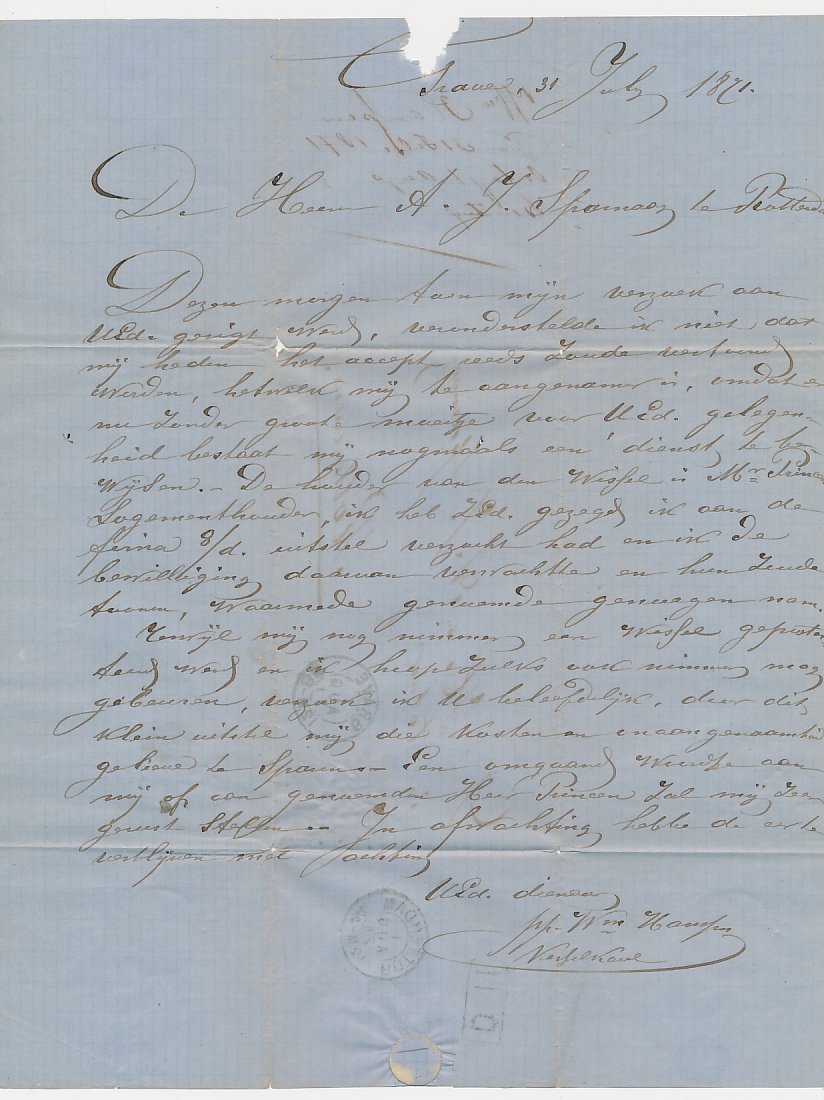 Grave, 31 July 1871.
De Heer A. J. Sparnaay te Rotterda
Dezen morgen toen mijn verzoek aan
UEd. gerigt werd, veronderstelde ik niet dat
mij heden het accept reeds zoude vertoond
worden, hetwelk mij te aangenamer is, omdat er
nu zonder groote moeitje voor UEd. gelegen-
heid bestaat mij nogmaals een dienst te be-
wijsen. – De houder van den Wissel is Mr. Princen
Logementhouder, ik heb ZEd. gezegd ik aan de
firma s/d. uitstel verzocht had en ik de
bewilliging daarvan verwachtte en hun zoude
toonen, waarmede genoemde genoegen nam.
Terwijl mij nog nimmer een Wissel geprotes-
teerd werd en ik hoop zulks ook nimmer mag
gebeuren, verzoek ik U beleefdelijk, door dit
klein uitstel mij die kosten en onaangenaamhe
gelieve te sparen – Een omgaand Woordje aan
mij of aan genoemden Heer Princen zal mij zeer
gerust stellen – In afwachting hebbe de eer te
verblijven met achting
UEd. dienaar
pp. Wm Hampm